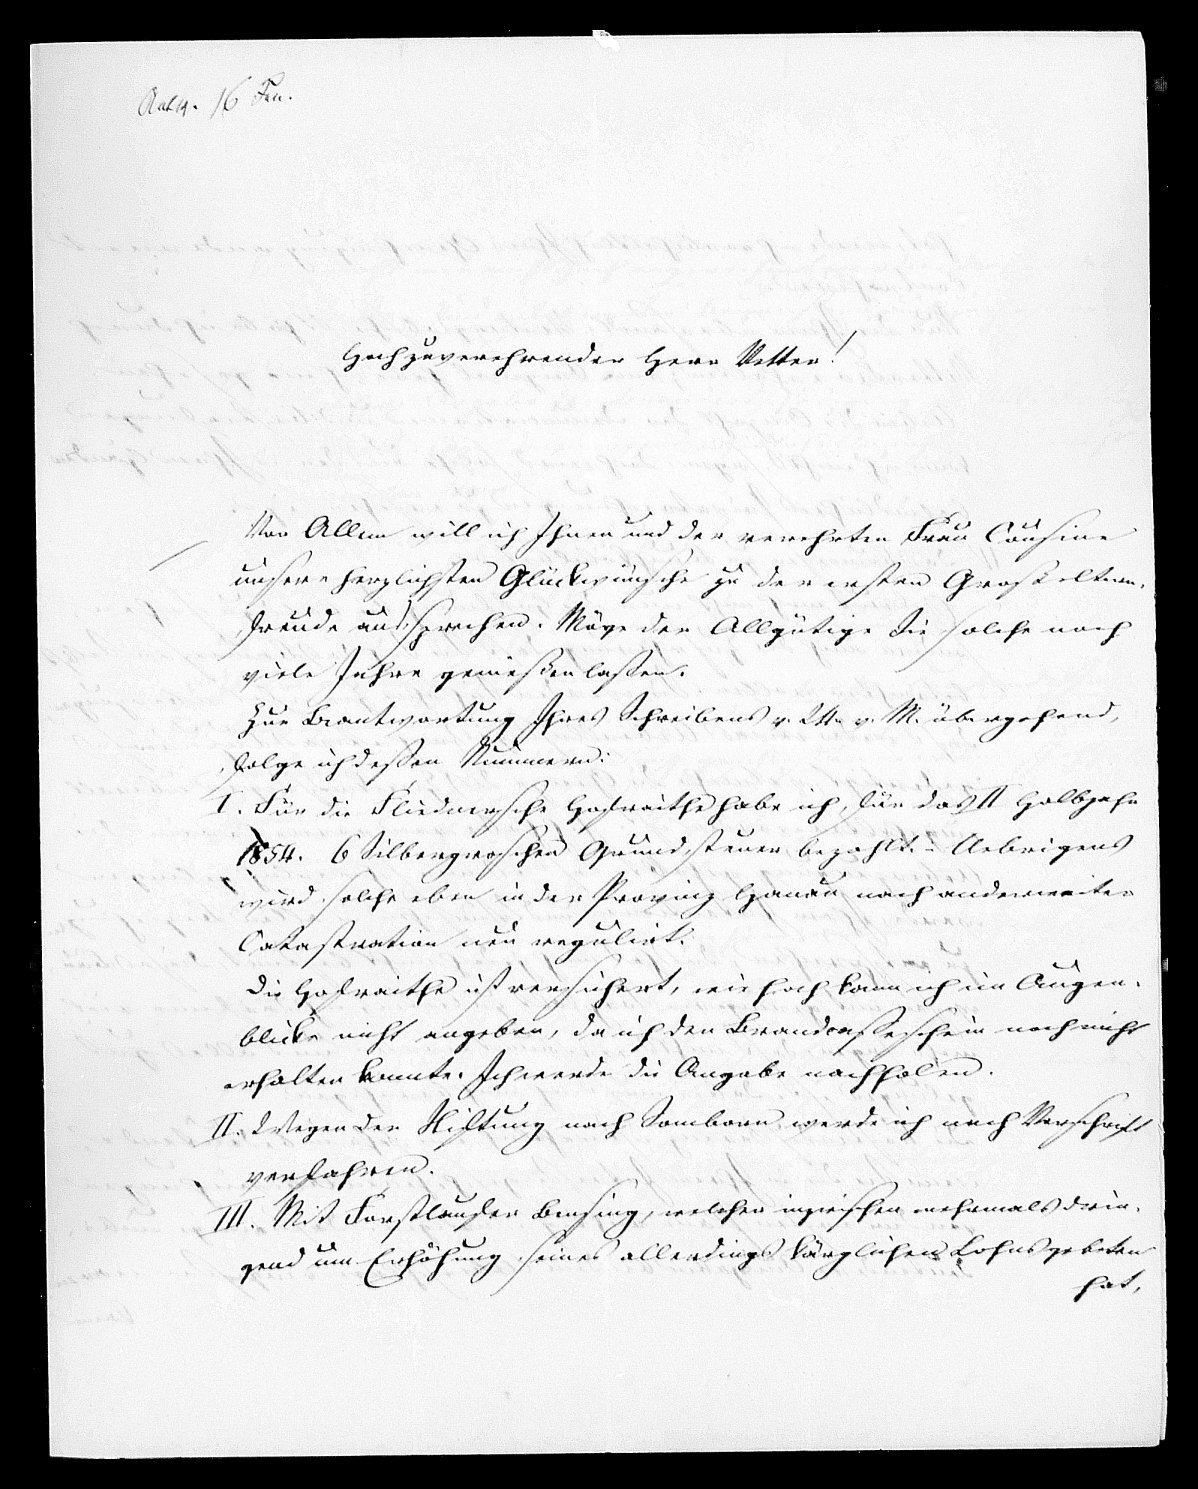 Antw. 16 Jan.
Hochzuverehrender Herr Vetter!
Vor Allem will ich Ihnen und der verehrten Frau Cousine
unsere herzlichsten Glückwünsche zu der ersten Großeltern-
freude aussprechen. Möge der Allgütige Sie solche noch
viele Jahre genießen lassen.
Zur Beantwortung Ihres Schreibens v. 24. v. M. übergehend,
folge ich dessen Nummern:
I. Für die Fliednersche Hofraithe habe ich, für das II Halbjahr
1854. 6 Silbergroschen Grundsteuer bezahlt. - Uebrigens
wird solche eben in der Provinz Hanau nach anderweiter
Catastration neu regulirt.
Die Hofraithe ist versichert, wie hoch kann ich im Augen-
blicke nicht angeben, da ich den Brandcasseschein noch nicht
erhalten konnte. Ich werde die Angabe nachholen.
II. Wegen der Stiftung nach Somborn werde ich nach Vorschrift
verfahren.
III. Mit Forstlaufer Bensing, welcher inzwischen mehrmals drin-
gend um Erhöhung seines allerdings kärglichen Lohns gebeten
hat,